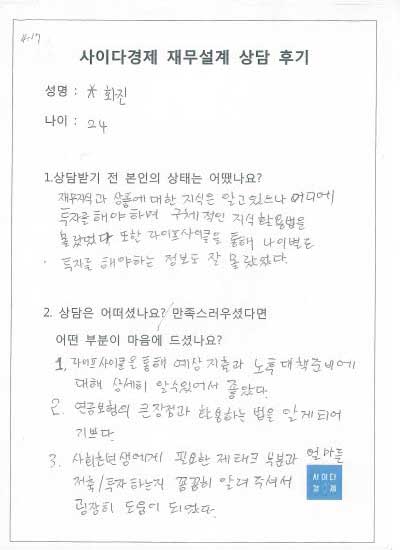 4-17
사이다경제 재무설계 상담 후기
성명 : * 화진
나이 : 24
1.상담받기 전 본인의 상태는 어땠나요?
재무지식과 상품에 대한 지식은 알고 있으나 어디에
투자를 해야 하며 구체적인 지식 활용법을
몰랐었다 또한 라이프사이클을 통해 나이별로
투자를 해야하는 정보도 잘 몰랐었다.
2. 상담은 어떠셨나요? 만족스러우셨다면
어떤 부분이 마음에 드셨나요?
1. 라이프사이클을 통해 예상 지출과 노후대책준비에
대해 상세히 알수있어서 좋았다.
2. 연금보험의 큰 장점과 활용하는 법을 알게되어
기쁘다.
3. 사회초년생에게 필요한 제테크 부분과 얼마를
저축/투자 하는지 꼼꼼히 알려주셔서
굉장히 도움이 되었다.
사이다
경제